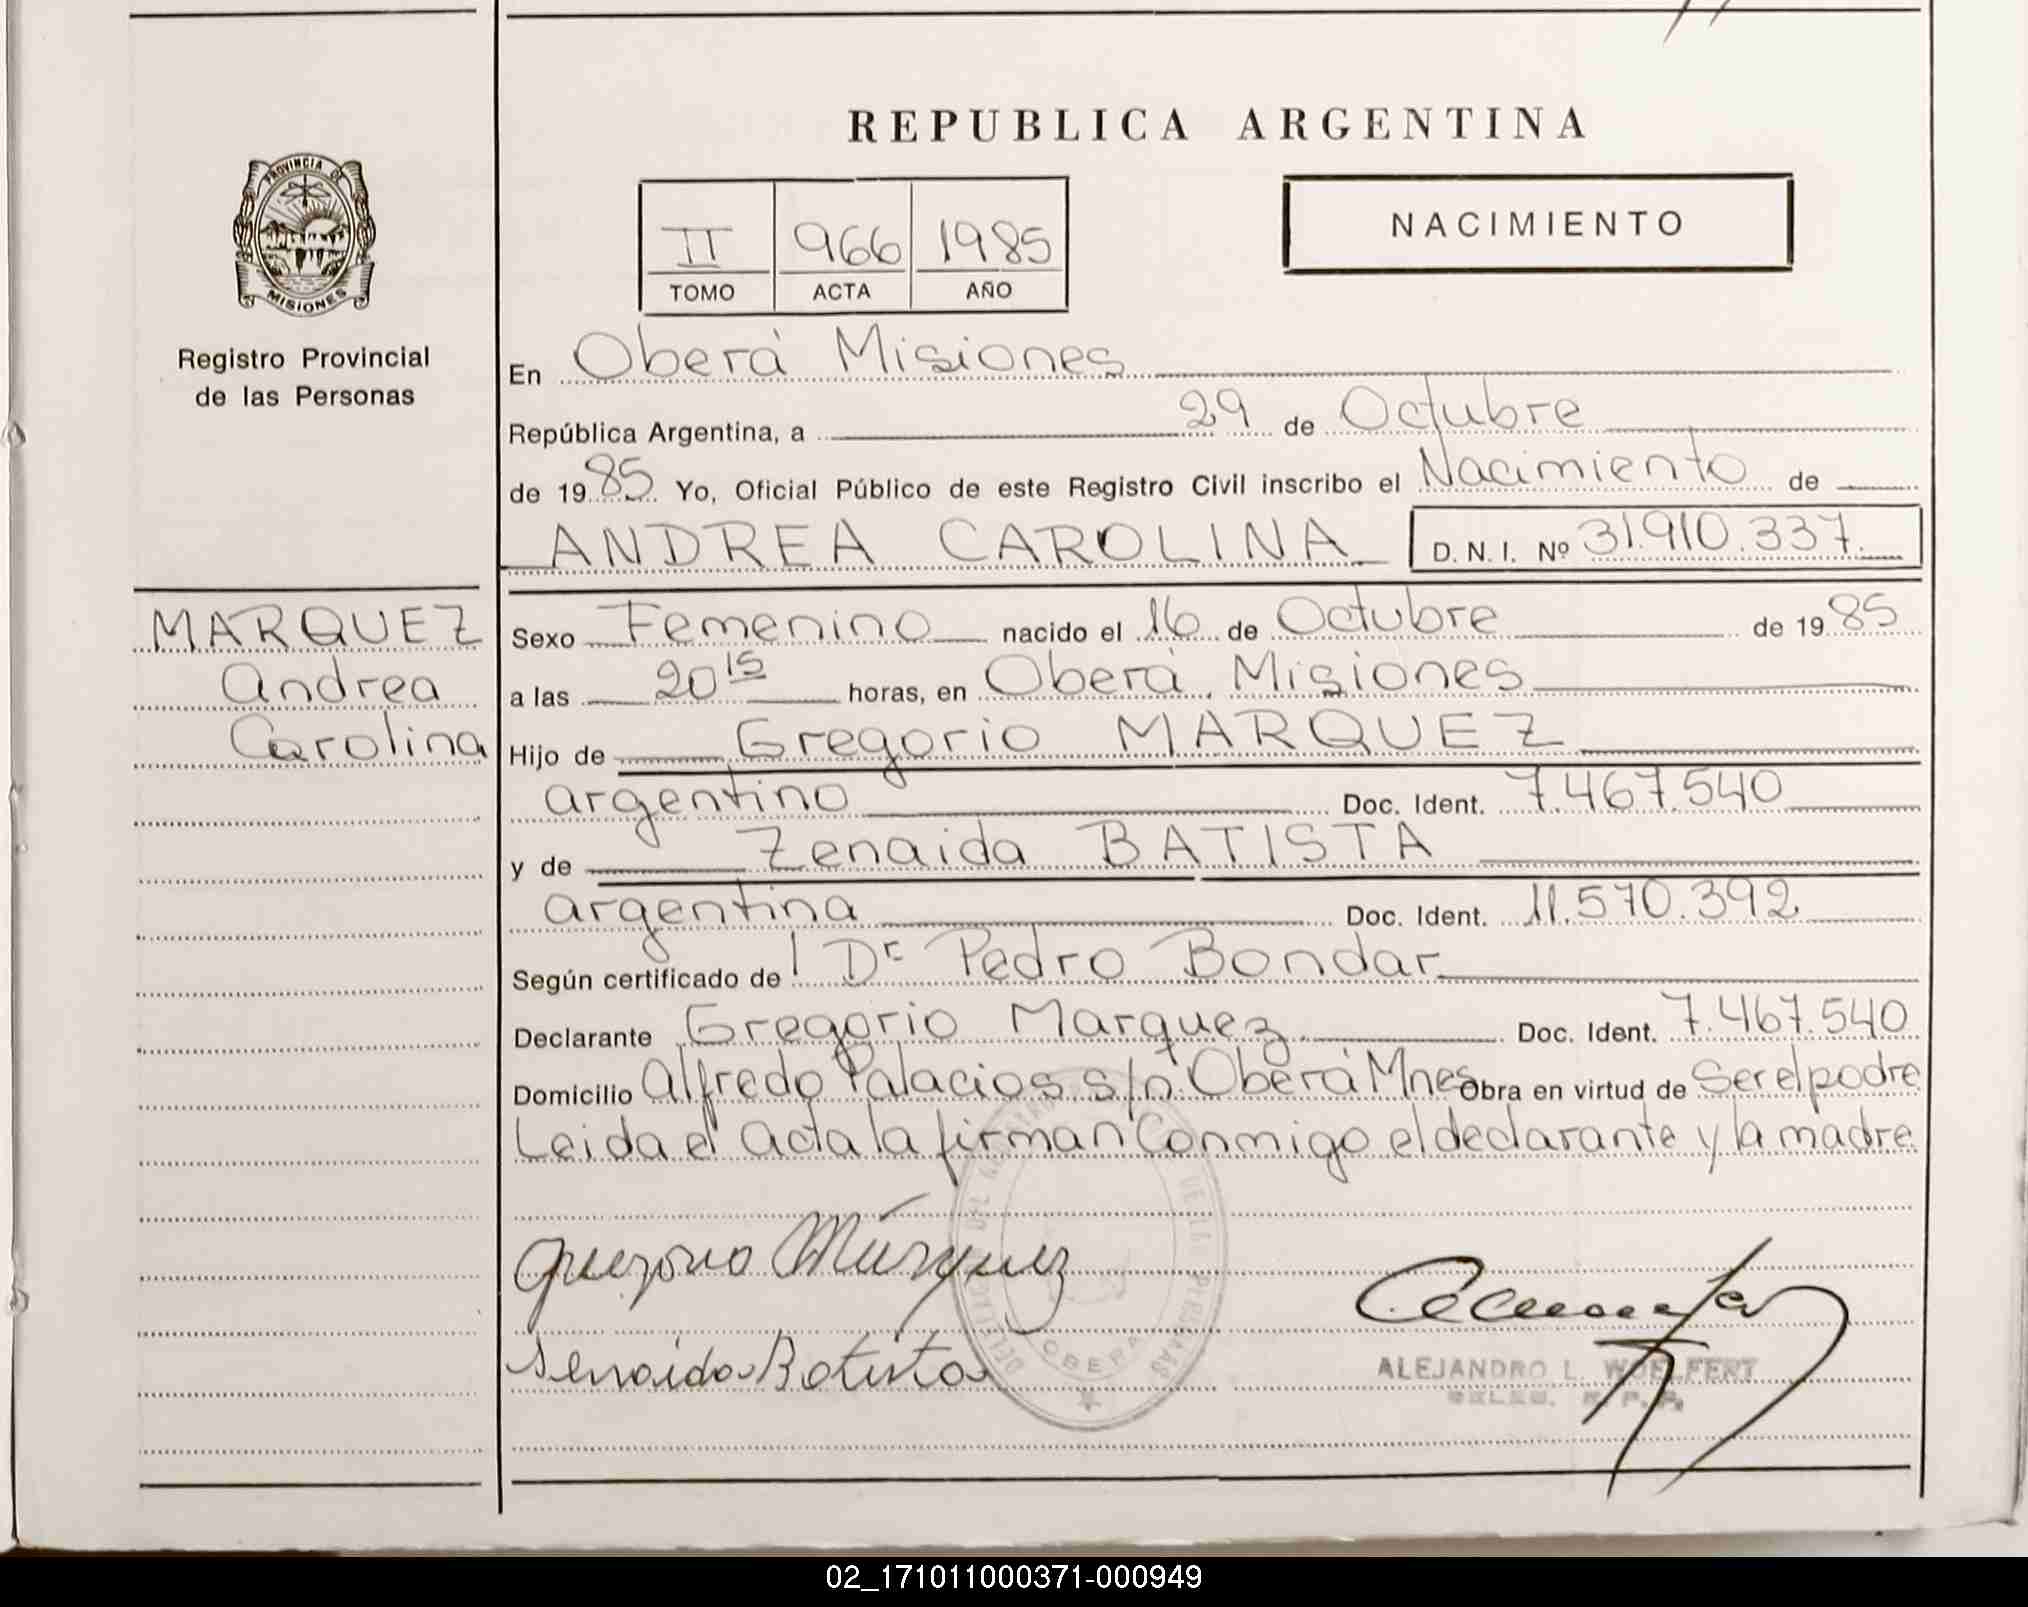 REPUBLICA ARGENTINA
PROVINCIA DE
MISIONES
Registro Provincial
de las Personas
II 966 1985
TOMO ACTA AÑO
NACIMIENTO
En Oberá Misiones
República Argentina, a 29 de Octubre
de 1985 Yo, Oficial Público de este Registro Civil inscribo el Nacimiento de
ANDREA CAROLINA D.N.I. Nº 31.910.337.
MARQUEZ
Andrea
Carolina
Sexo Femenino nacido el 16 de Octubre de 1985
a las 20 15 horas, en Oberá, Misiones
Hijo de Gregorio MARQUEZ
argentino Doc. Ident. 7.467.540
y de Zenaida BATISTA
argentina Doc. Ident. 11.570.392
Según certificado de Dr Pedro Bondar
Declarante Gregorio Marquez Doc. Ident. 7.467.540
Domicilio Alfredo Palacios s/n. Oberá Mnes Obra en virtud de Ser el padre
Leida el Acta la firman Conmigo el declarante y la madre
Gregorio Márquez
Senaida Batista
OBERA
ALEJANDRO L. WOELFERT
02_171011000371-000949